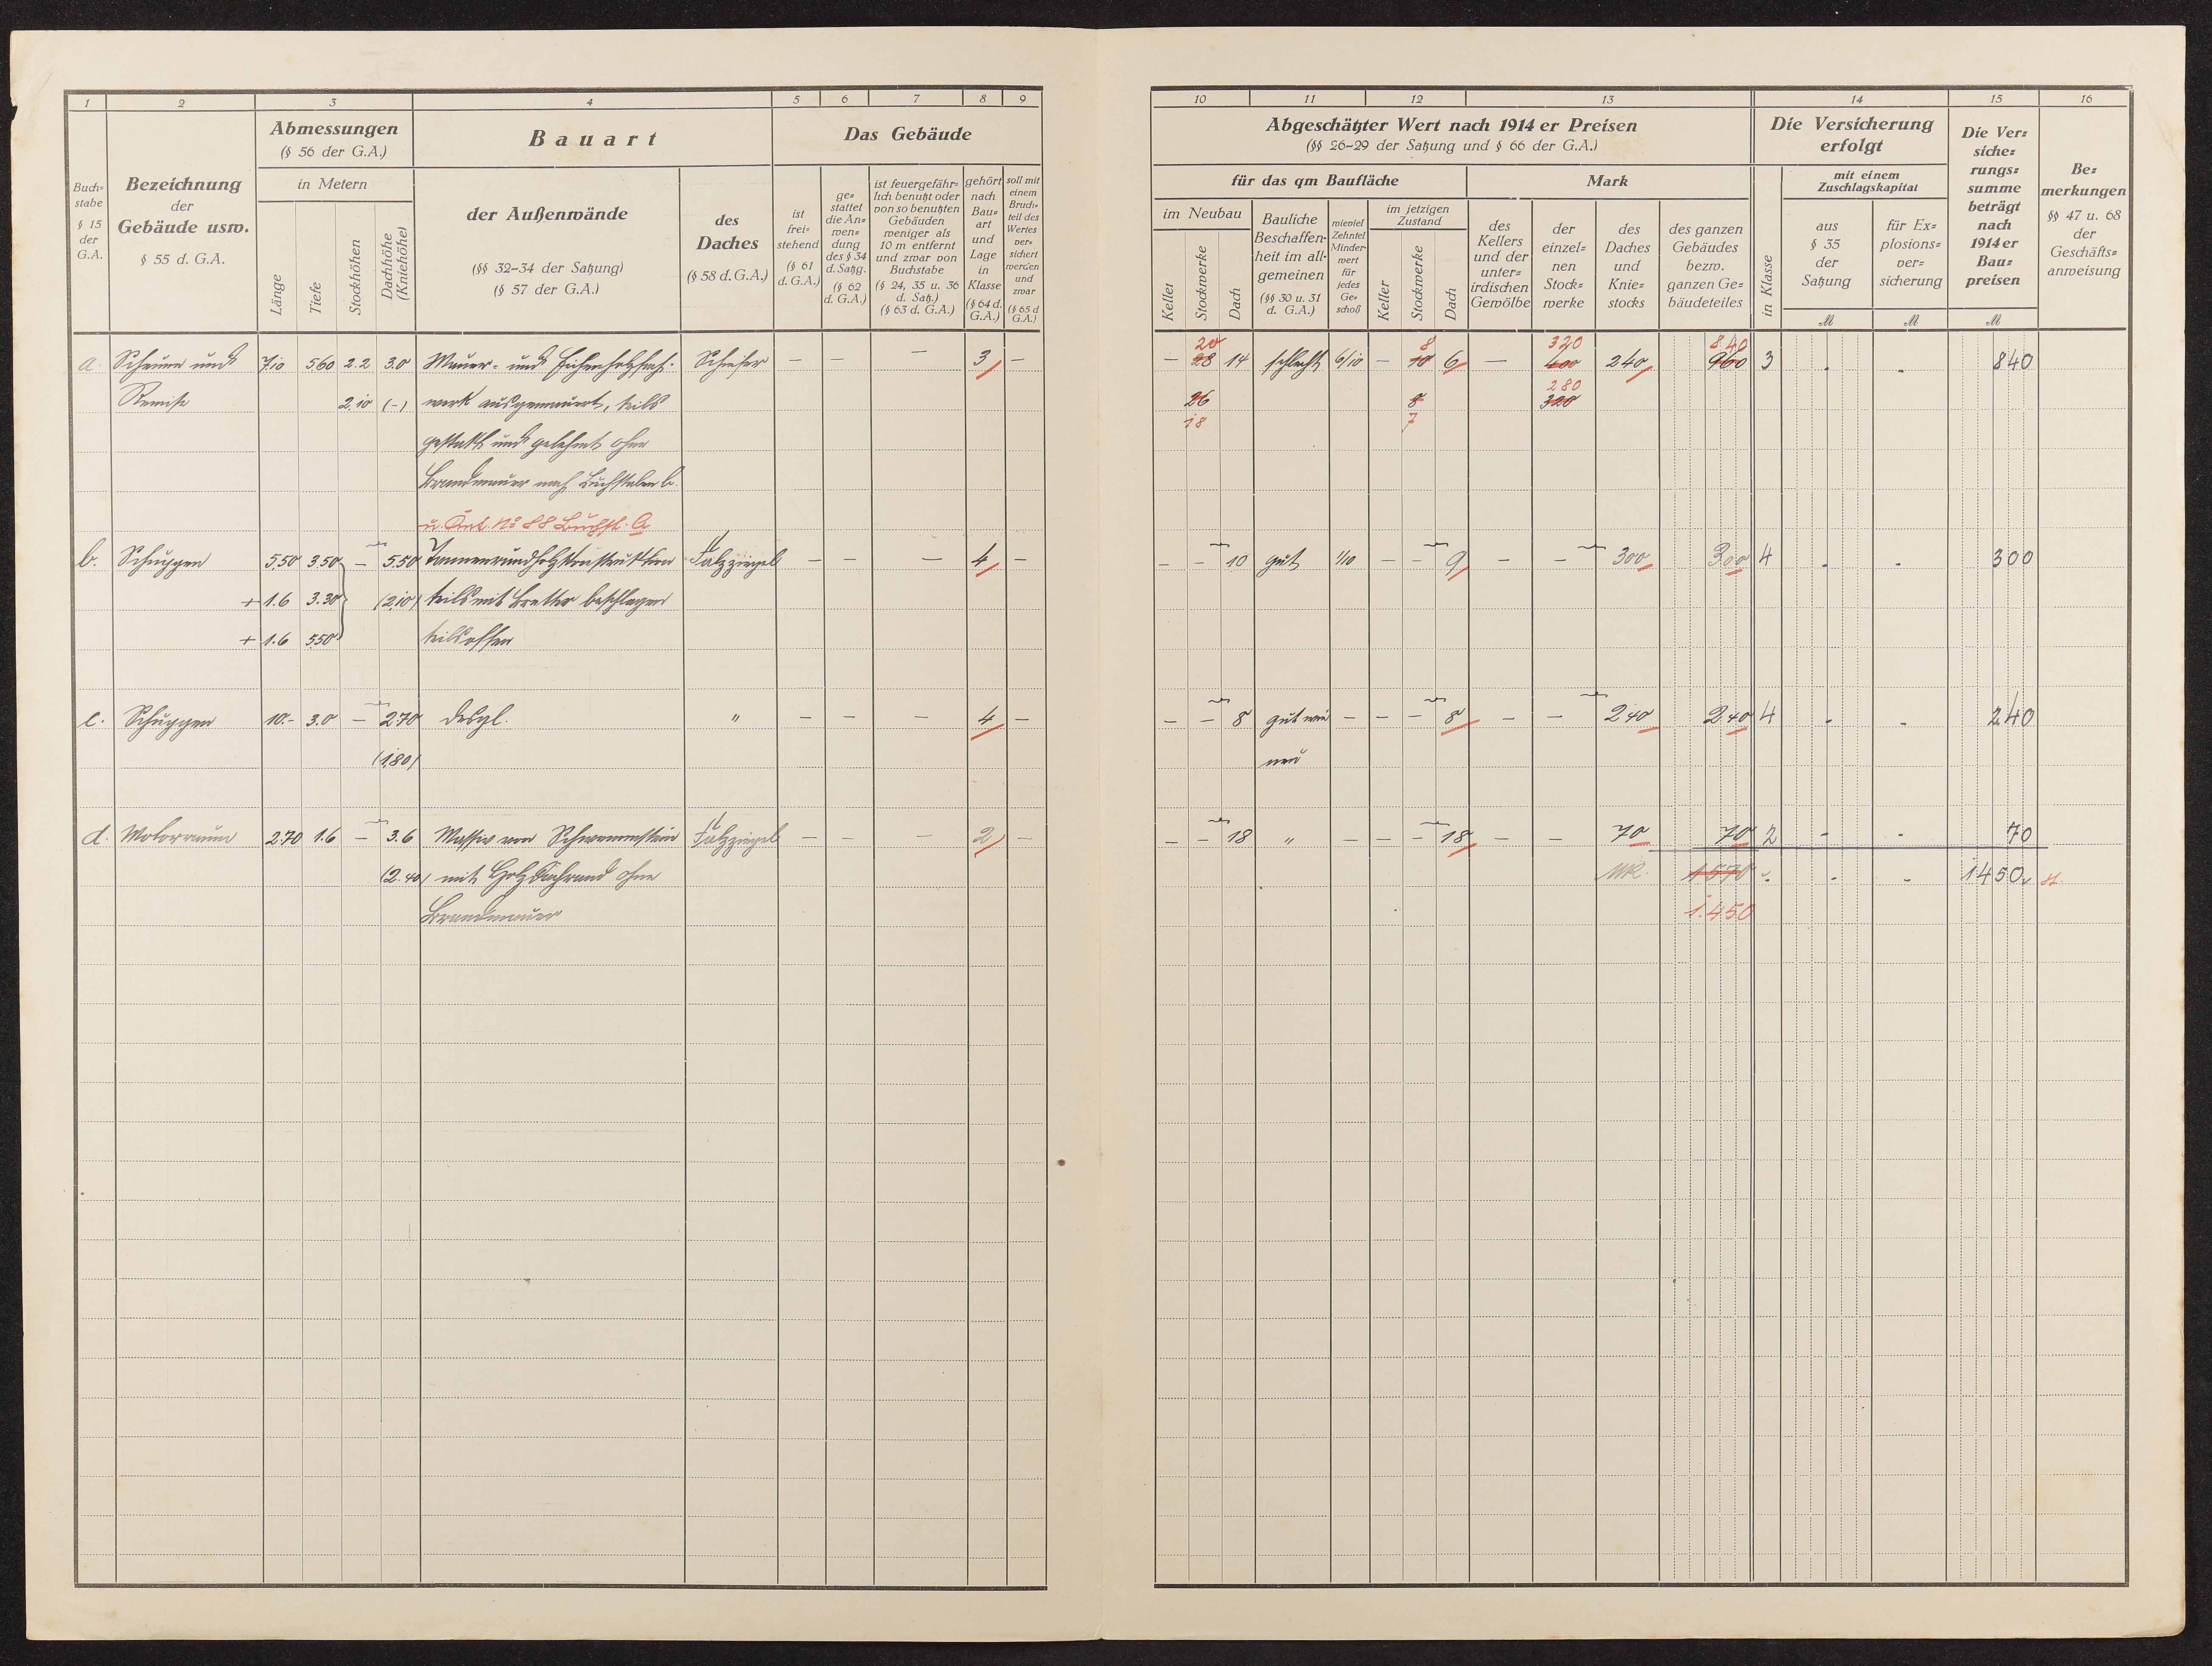 1 2 3 4 5 6 7 8 9
Abmessungen
(§ 56 der G.A.)
Bauart
Das Gebäude
Buch=
stabe
§ 15
der
G.A.
Bezeichnung
der
Gebäude usw.
§ 55 d. G.A.
in Metern
Länge
Tiefe
Stockhöhen
Dachhöhe
(Kniehöhe)
der Außenwände
(§§ 32-34 der Satzung)
(§ 57 der G.A.)
des
Daches
(§ 58 d. G.A.)
ist
frei=
stehend
(§ 61
d. G.A.)
ge=
stattet
die An=
wen=
dung
des § 34
d. Satzg.
(§ 62
d. G.A.)
ist feuergefähr=
lich benutzt oder
von so benutzten
Gebäuden
weniger als
10 m entfernt
und zwar von
Buchstabe
(§ 24, 35 u. 36
d. Satz.)
(§ 63 d. G.A.)
gehört
nach
Bau=
art
und
Lage
in
Klasse
(§ 64 d.
G.A.)
soll mit
einem
Bruch=
teil des
Wertes
ver=
sichert
werden
und
zwar
(§ 65 d
G.A.)
a. Scheune und 7.10 560 2.2 3.0 Mauer- und Eichenholzfach- Schiefer — — — 3 —
Remise 2.10 (-) werk ausgemauert, teils
gestakt und gelehmt ohne
Brandmauer nach Buchstaben b.
u. Kat. No 88 Buchst. a
b. Schuppen 5.50 3.50 — 5.50 Tannenrundholzkonstruktion Falzziegel — — — 4 —
+ 1.6 3.30 (2.10) teils mit Bretter beschlagen
+ 1.6 5.50 teils offen
c. Schuppen 10.- 3.0 — 2.70 desgl. " — — — 4 —
(1.80)
d. Motorraum 2.70 1.6 — 3.6 Massiv von Schwemmstein Falzziegel — — — 2 —
(2.40) mit Holzdachrand ohne
Brandmauer
10 11 12 13 14 15 16
Abgeschätzter Wert nach 1914 er Preisen
(§§ 26-29 der Satzung und § 66 der G.A.)
für das qm Baufläche
Mark
im Neubau
Keller
Stockwerke
Dach
Bauliche
Beschaffen=
heit im all=
gemeinen
(§§ 30 u. 31
d. G.A.)
wieviel
Zehntel
Minder=
wert
für
jedes
Ge=
schoß
im jetzigen
Zustand
Keller
Stockwerke
Dach
des
Kellers
und der
unter=
irdischen
Gewölbe
der
einzel=
nen
Stock=
werke
des
Daches
und
Knie=
stocks
des ganzen
Gebäudes
bezw.
ganzen Ge=
bäudeteiles
Die Versicherung
erfolgt
in Klasse
mit einem
Zuschlagskapital
aus
§ 35
der
Satzung
für Ex=
plosions=
ver=
sicherung
M M M
Die Ver=
siche=
rungs=
summe
beträgt
nach
1914 er
Bau=
preisen
Be=
merkungen
§§ 47 u. 68
der
Geschäfts=
anweisung
20 8 320 840
— 28 14 schlecht 6/10 — 10 6 — 400 240 960 3 - - 840
280
26 8 320
18 7
— — 10 gut 1/10 — — 9 — — 300 300 4 - - 300
— — 8 gut wie — — — 8 — — 240 240 4 - - 240
neu
— — 18 " — — — 18 — — 70 70 2 - - 70
MK. 1570 - - - 1450
1.450